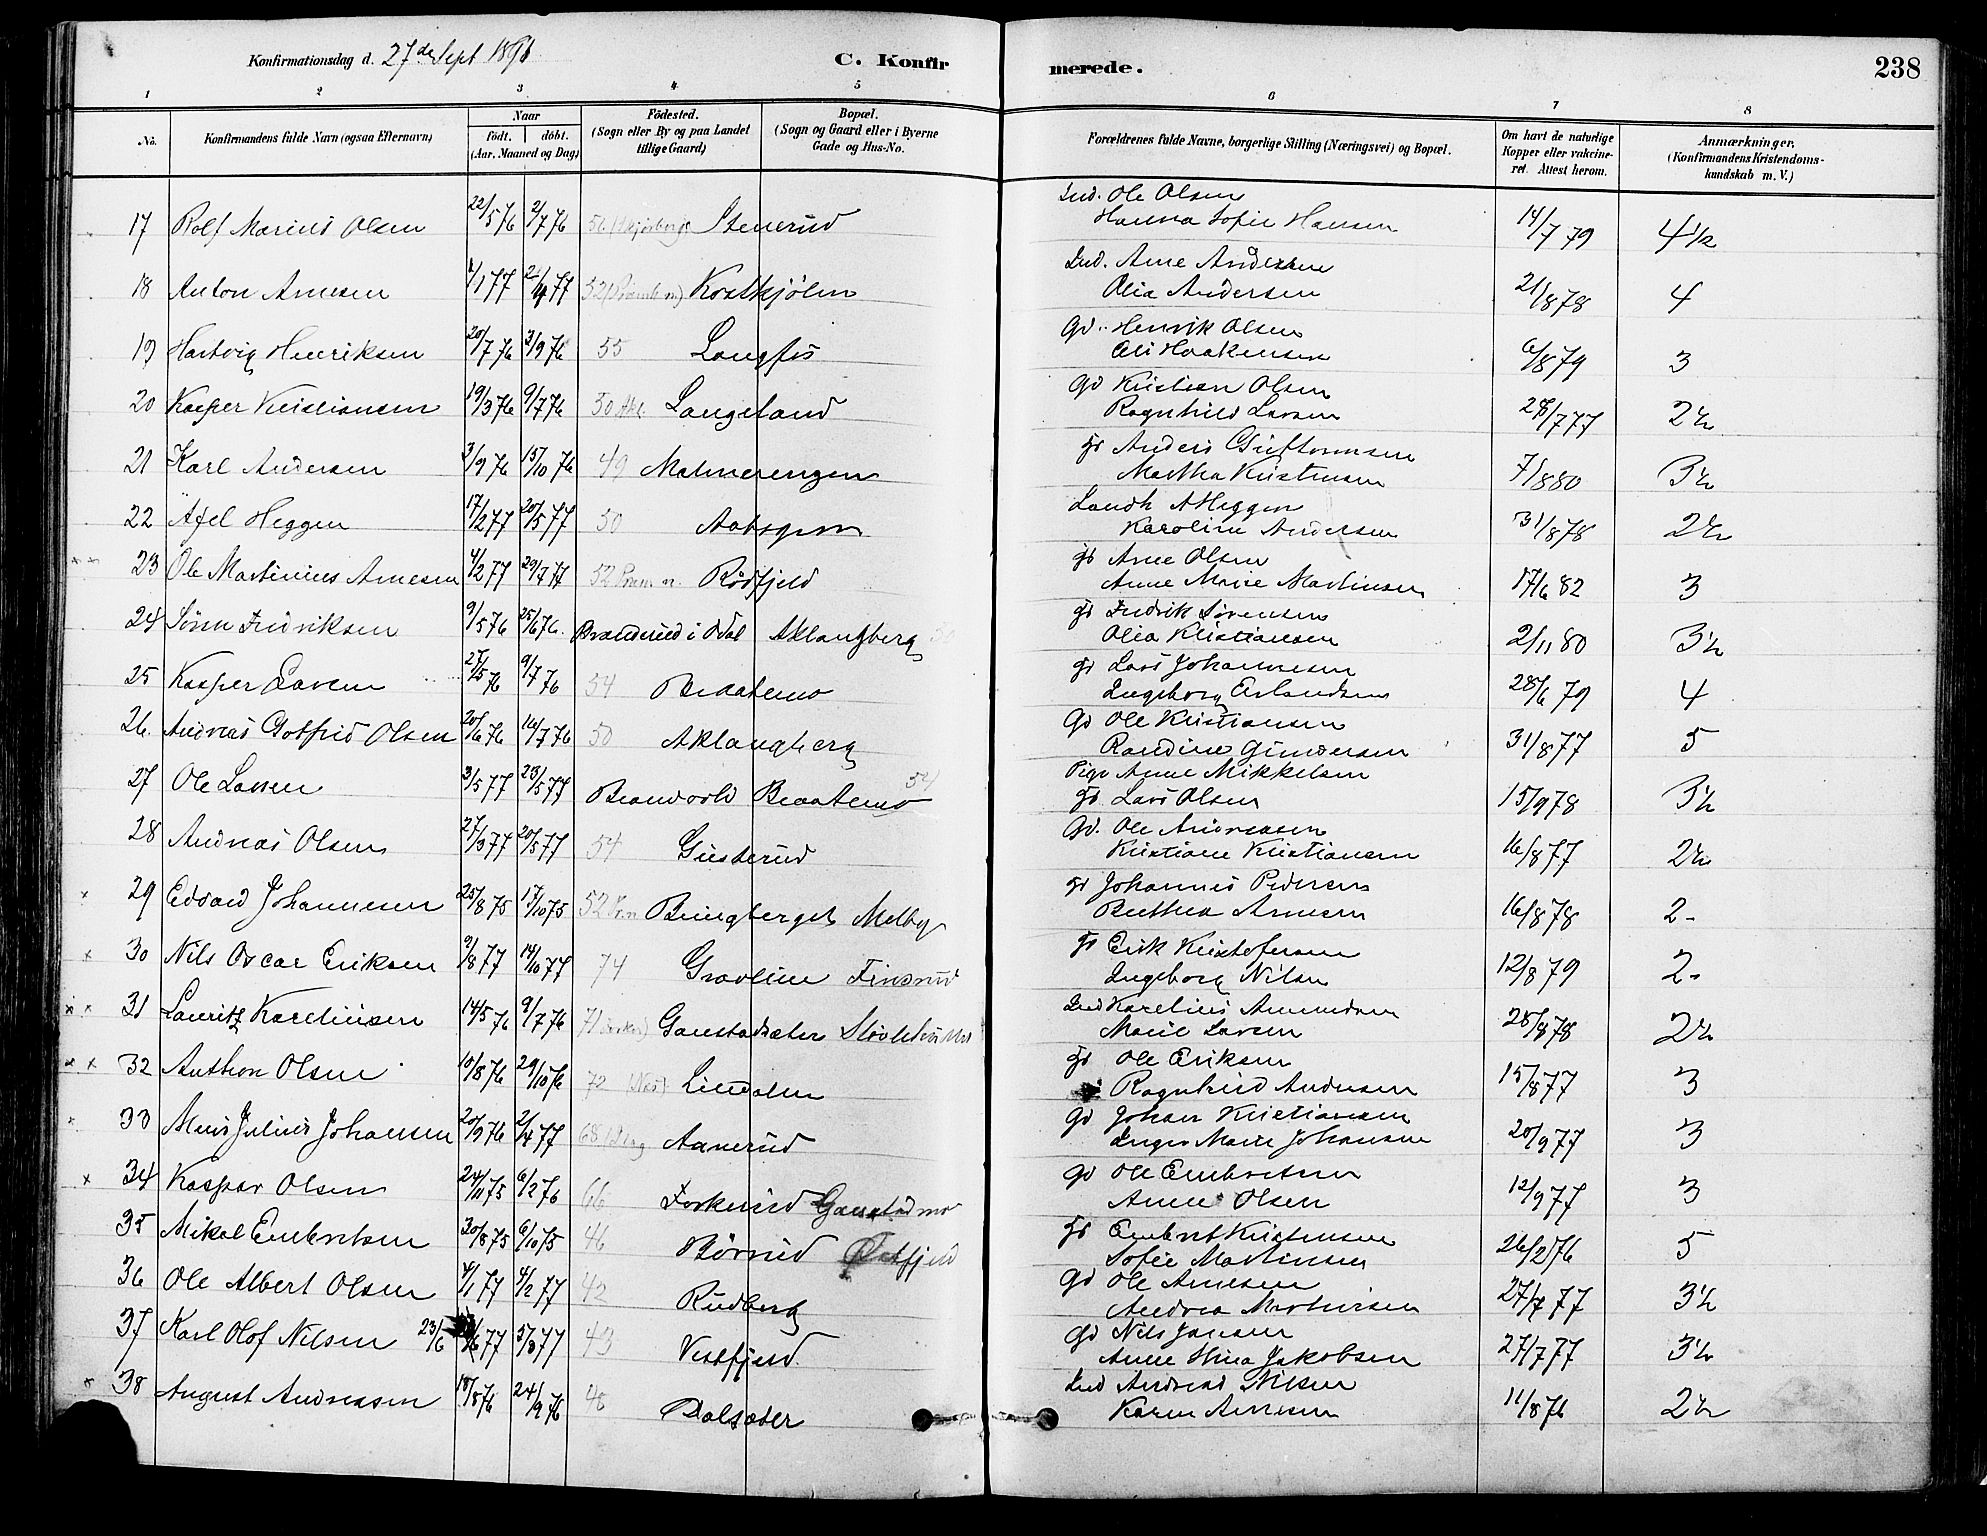 Konfirmationsdag d. 27de Sept 1891
C. Konfirmerede.
238
1 2 3 4 5 6 7 8
No.
Konfirmandens fulde Navn (ogsaa Efternavn)
Naar
födt. döbt.
(Aar, Maaned og Dag)
Födested.
(Sogn eller By og paa Landet
tillige Gaard)
Bopæl.
(Sogn og Gaard eller i Byerne
Gade og Hus-No.
Forældrenes fulde Navne, borgerlige Stilling (Næringsvei) og Bopæl.
Om havt de naturlige
Kopper eller vakcine-
ret. Attest herom.
Anmærkninger.
(Konfirmandens Kristendoms-
kundskab m. V.)
17 Rolf Marius Olsen 22/5 76 2/7 76 56 Stenerud Ind. Ole Olsen
Hanna Sofie Hansen 14/7 79 4½
18 Anton Arnesen 1/1 77 77 52 Kostkjølen Ind. Arne Andersen
Olia Andersen 21/8 78 4
19 Hartvig Henriksen 20/7 76 3/9 76 55 Langfos Gd. Henrik Olsen
Oli Haakensen 6/8 79 3
20 Kasper Kristiansen 19/3 76 9/7 76 50 Akl. Langeland Gd Kristian Olsen
Ragnhild Larsen 28/7 77 2½
21 Karl Andersen 3/9 76 15/10 76 49 Malmerengen Gs Anders Gulbransen
Martha Kristensen 7/8 80 3½
22 Axel Heggen 17/2 77 20/5 77 50 Aabogen Landh A Heggen
Karoline Andersen 31/8 78 2½
23 Ole Martinius Arnesen 4/2 77 29/7 77 52 Rødfjeld gs Arne Olsen
Anne Marie Martinsen 17/6 82 3
24 Sören Fredriksen 9/5 76 25/6 76. Brånderud i Odal Aklangberg 50 gs Fredrik Sørensen
Olia Kristiansen 2/11 80 3½
25 Kasper Larsen 27/5 76 9/7 76 54 Braatemo gs Lars Johannesen
Ingeborg Erlandsen 28/6 79 4
26. Andreas Gotfrid Olsen 20/6 76 16/7 76 50 Aklangberg Gd Ole Kristiansen
Randine Gundersen 31/8 77 5
27 Ole Larsen 3/5 77 23/5 77 Brandvold Braatemo 54 Pige Anne Mikkelsen
gs. Lars Olsen 15/9 78 3½
28 Andreas Olsen 27/3 77 20/5 77 54 Gusterud Gd. Ole Andreasen
Kristiane Kristiansen 16/8 77 2½
29 Edvard Johannesen 25/8 75 17/10 75 52 Bringberget Melby gs Johannes Pedersen
Berthea Arnesen 16/8 78 2-
30 Nils Oscar Eriksen 9/8 77 14/10 77 74 Gravlien Finsrud gs Erik Kristofersen
Ingeborg Nilsen 12/8 79 2-
31 Lauritz Karelinsen 14/5 76 9/7 76 71 Gaustadsæter Ind Karelius Amundsen
Marie Larsen 28/8 78 2½
32 Anthon Olsen 10/8 76 29/10 76 72 (Nor) Liendalen gs Ole Eriksen
Ragnhild Andersen 15/8 77 3
33 Julius Johansen 20/9 76 2/4 77 68 Aanerud Gd Johan Kristiansen
Inger Marie Johansen 20/9 77 3
34 Kaspar Olsen 24/11 75 6/2 76 66 Forkerud Gaustadmo Gd Ole Embretsen
Anne Olsen 12/9 77 3
35 Mikal Embretsen 30/8 75 6/10 75 46 Børrud Østfjeld gs Embret Kristensen
Sofie Martinsen 26/2 76 5
36 Ole Albert Olsen 4/1 77 4/2 77 42 Rudberg Gd Ole Arnesen
Andrea Mathisen 27/7 77 3½
37 Karl Olof Nilsen 23/6 77 5/8 77 43 Vestfjeld Gd Nils Jansen
Anne Stina Jakobsen 27/7 77 3½
38 August Andreasen 18/8 76 24/9 76 48 Dalsæter Ind Andreas Nilsen
Karen Arnesen 11/8 76 2½